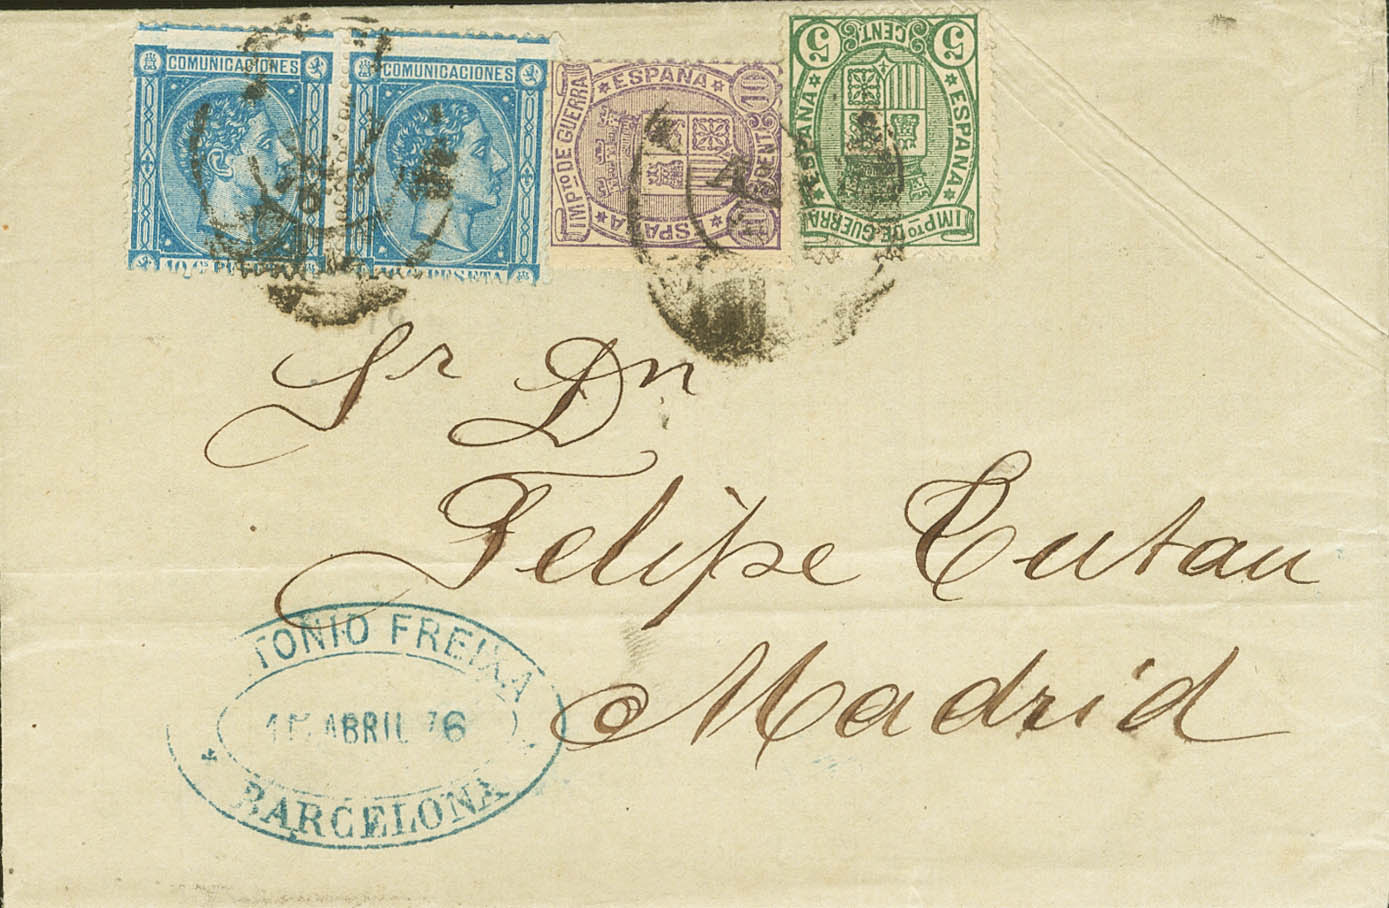 COMUNICACIONES
COMUNICACIONES
10 Cs PESETA
IMPto DE GUERRA
ESPAÑA
10
ESPAÑA
5 CENT. 5
ESPAÑA
ESPAÑA
IMPto DE GUERRA
Sr Dn
Felipe Cutau
Madrid
TONIO FREIXA
15 ABRIL 76
BARCELONA